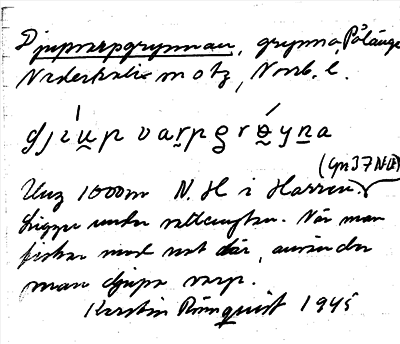 Djupvarpgrynnan, grynna, Pålänge
Nederkalix m otz, Norrb. l.
djúp varp grøyna
(Gm 37 N.Ö)
Unz 1000 m N. H i Harren.
Ligger under vattenytan. När man
fiskar med not där, använder
man djupa varp.
Kerstin Rönnquist 1945